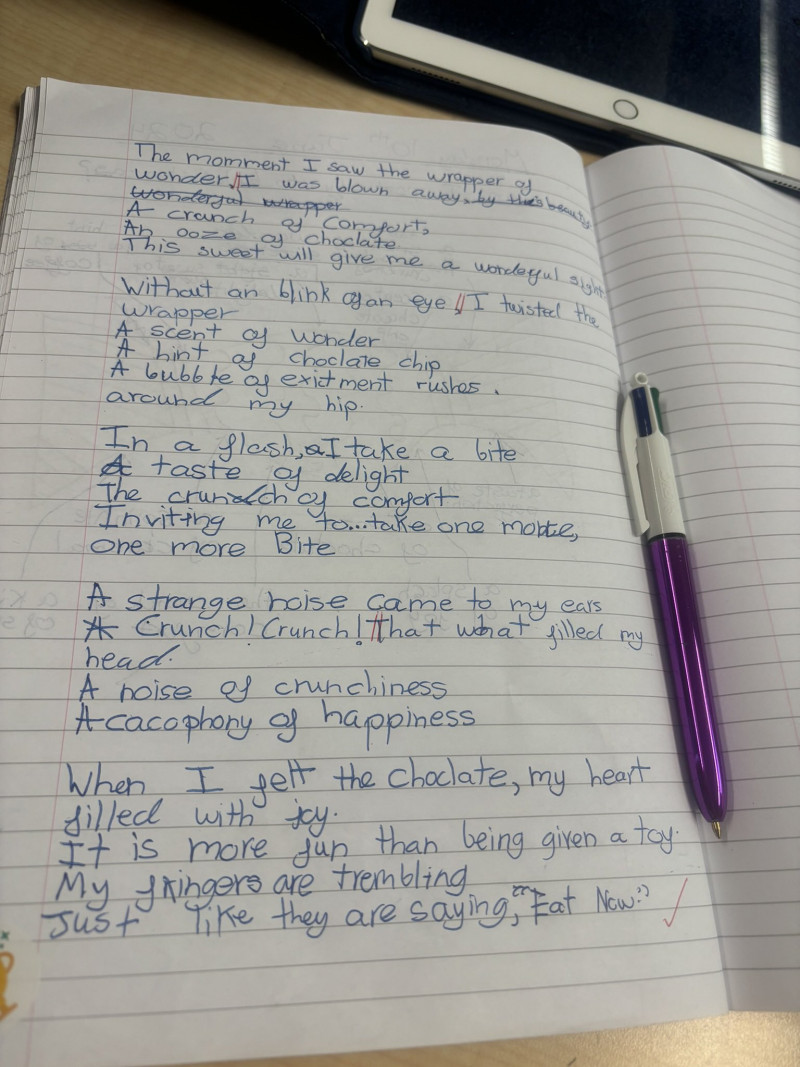 The momment I saw the wrapper of
wonder, // I was blown away, by this beauty
wonderful wrapper
A crunch of Comfort,
An ooze of choclate
This sweet will give me a wonderful sight
Without an blink of an eye // I twisted the
wrapper
A scent of wonder
A hint of choclate chip
A bubble of exictment rushes.
around my hip.
In a flash, I take a bite
A taste of delight
The crunch of comfort
Inviting me to...take one more,
one more Bite
A strange noise came to my ears
A Crunch! Crunch! // That what filled my
head.
A noise of crunchiness
A cacophony of happiness
When I felt the choclate, my heart
filled with joy.
It is more fun than being given a toy.
My fingers are trembling
Just like they are saying, "Eat Now!"